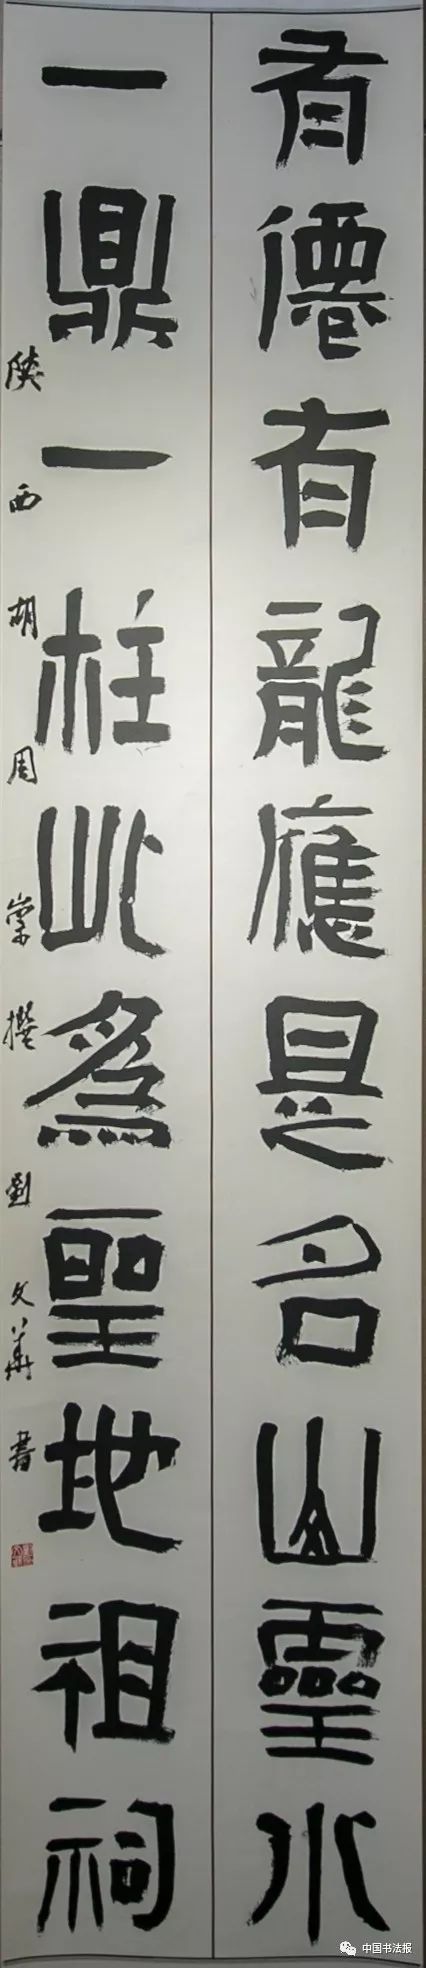 有僊有龍應是名山靈水
一鼎一柱此爲聖地祖祠
陕西胡周崇撰劉文華書
中国书法报